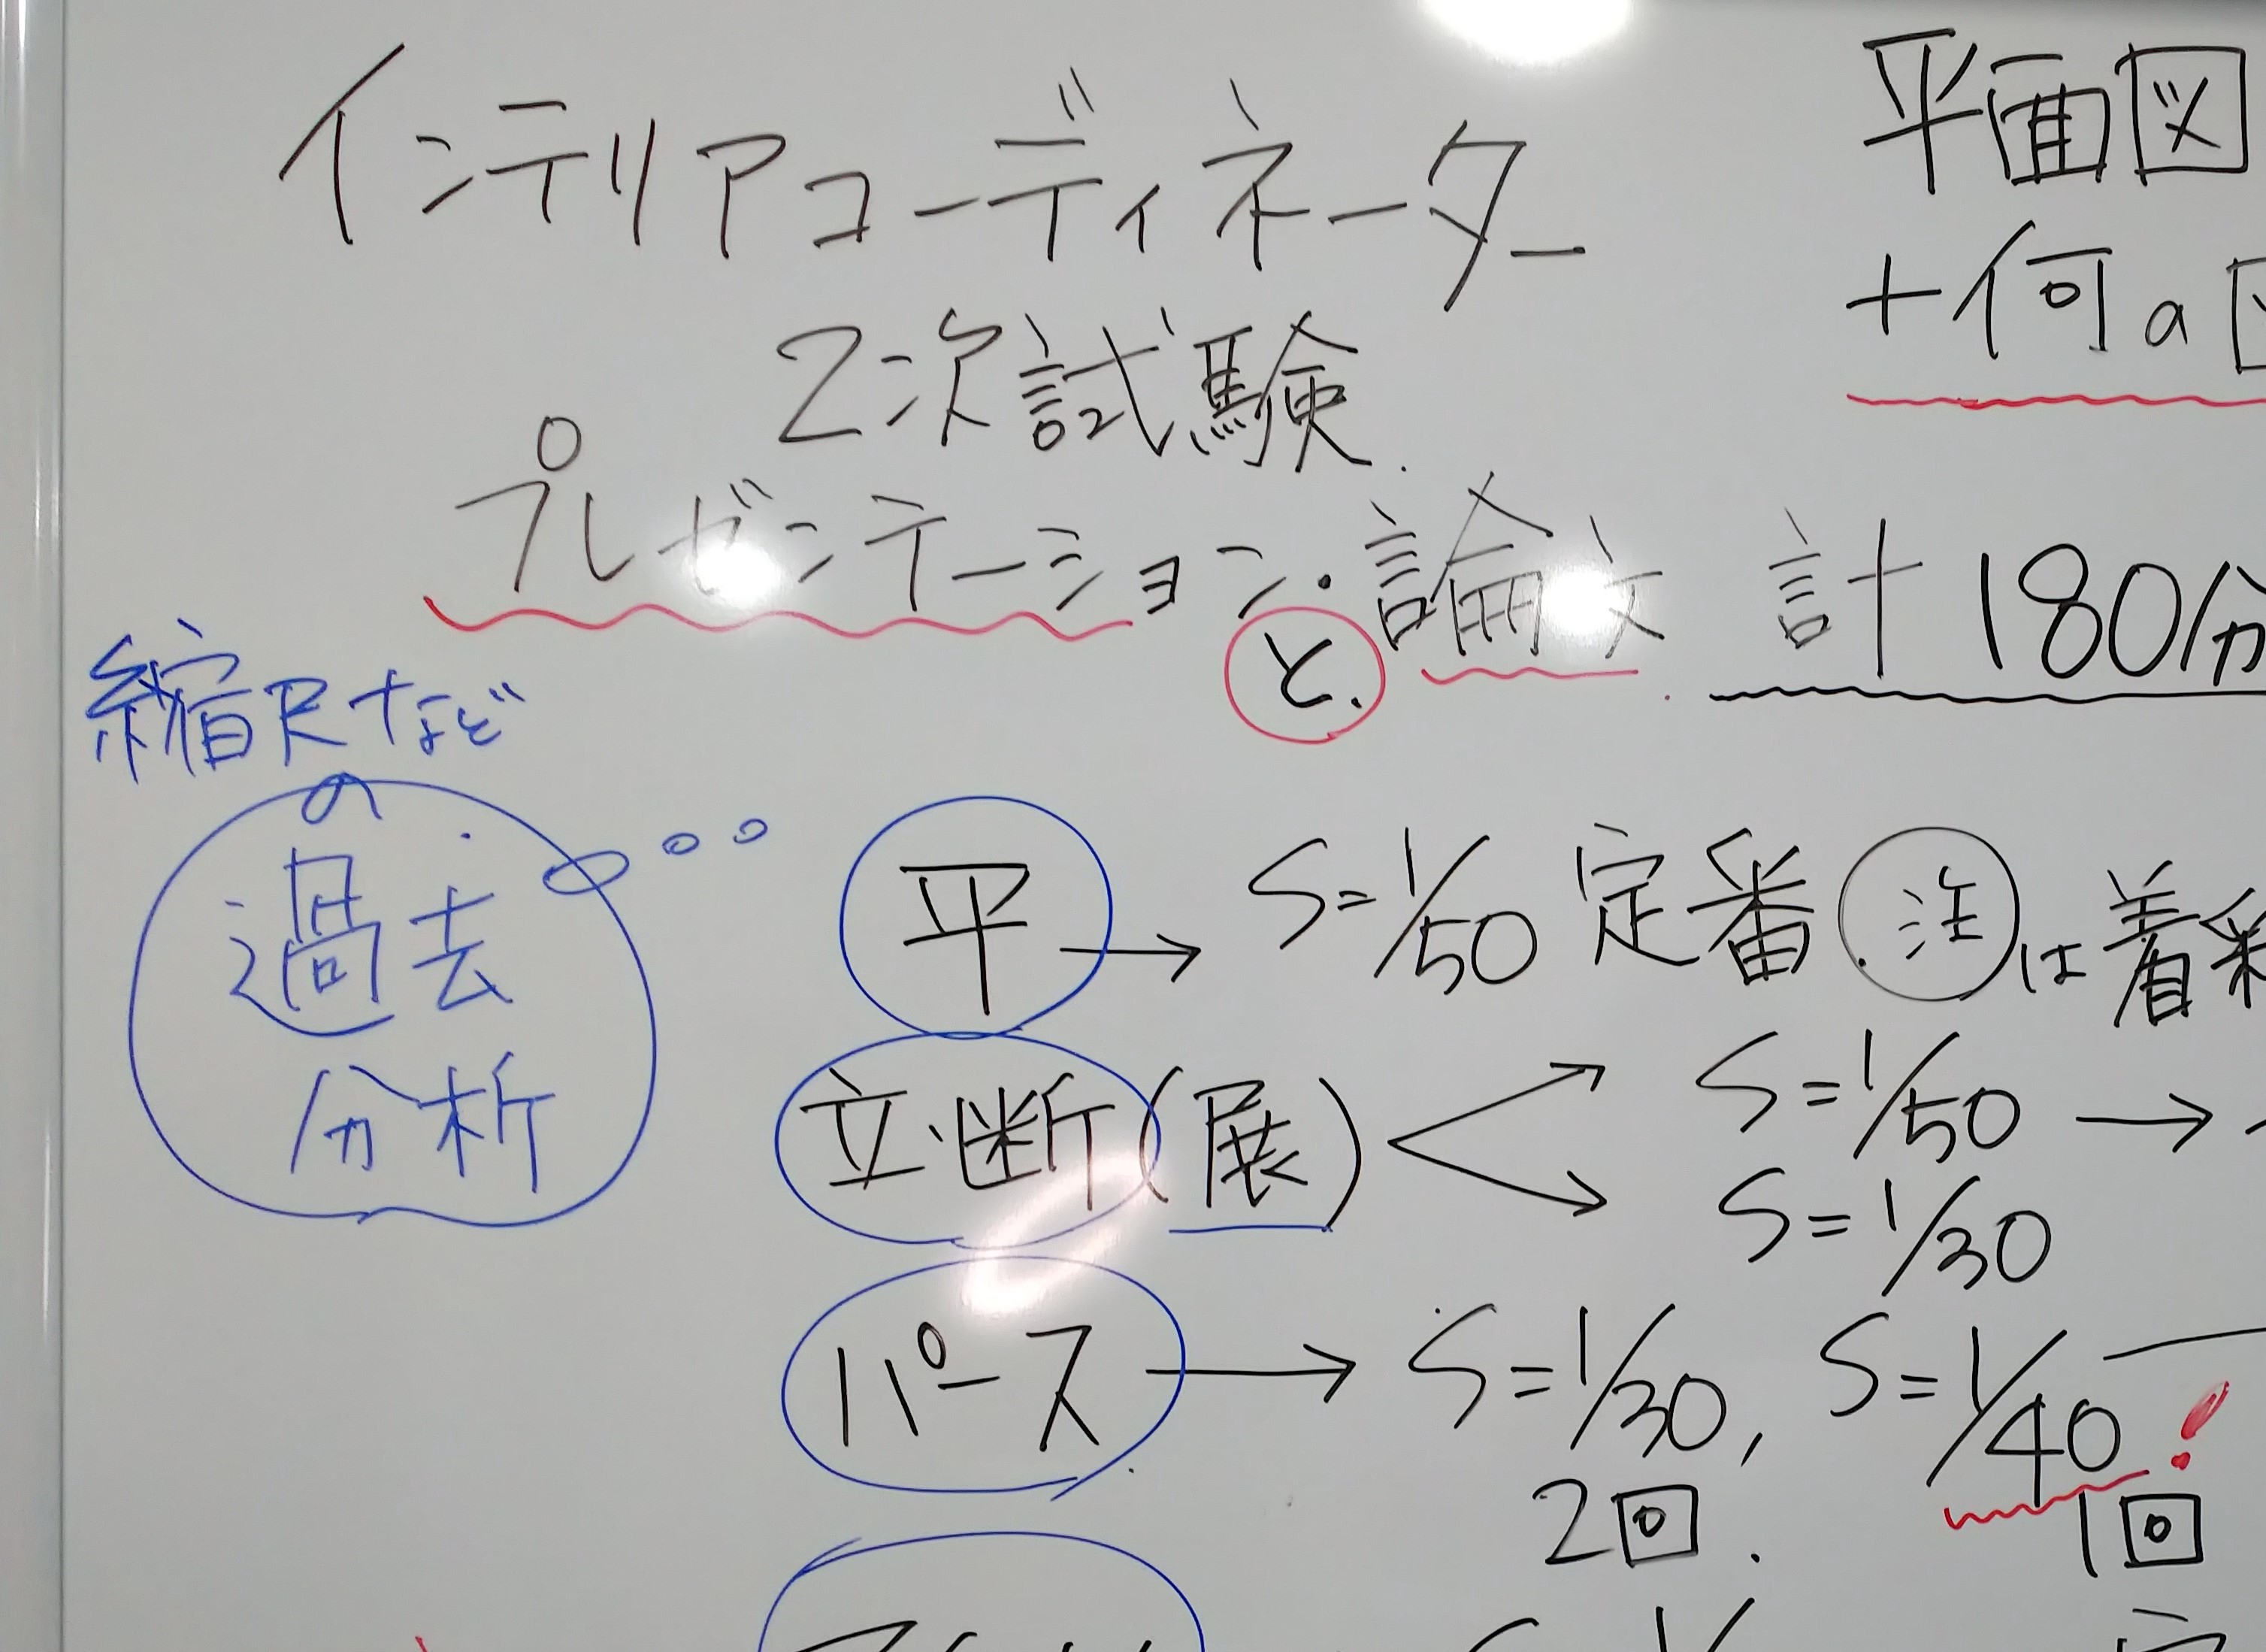 インテリアコーディネーター
2次試験.
プレゼンテーション・論文 計180分
と.
平面図
+何の
縮尺など
の
過去
分析
平 → S=1/50 定番 注 は着彩
立・断(展) S=1/50 →
S=1/30
パース → S=1/30, S=1/40 !
2回. 1回